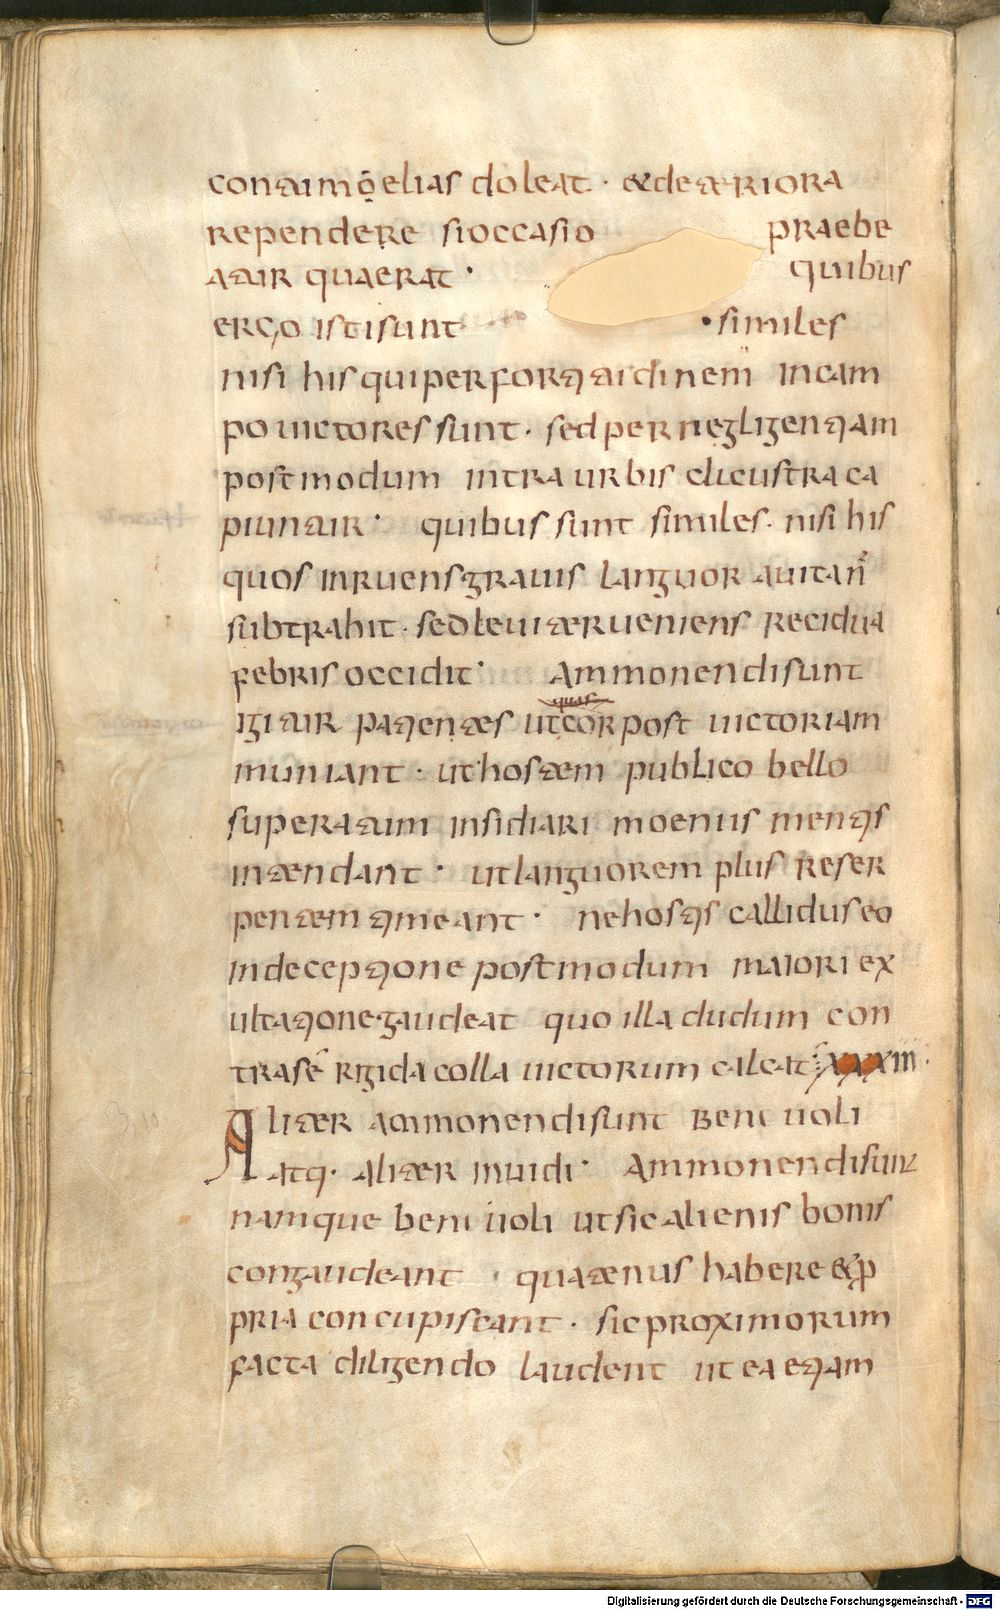 contumelias doleat · & deteriora
rependere si occasio praebe
atur quaerat · quibus
ergo isti sunt · similes
nisi his qui per fortitudinem in cam
po uictores sunt · sed per neglegentiam
postmodum intra urbis claustra ca
piuntur · quibus sunt similes · nisi his
quos inruens grauis languor a uita n̄
subtrahit · sed leuiter ueniens recidiua
febris occidit · Ammonendi sunt
igitur patientes ut cor post uictoriam
quasi
muniant · ut hostem publico bello
superatum insidiari moenus mentis
intendant · ut languorem plus reser
pentem timeant · ne hostis callidus eo
in deceptione postmodum maiori ex
ultatione gaudeat quo illa dudum con
tra se rigida colla uictorum calcat XXXIII
Aliter ammonendi sunt beniuoli
atq· aliter inuidi · Ammonendi sunt
namque beniuoli ut sic alienis bonis
congaudeant · quatenus habere & ꝓ
pria concupiscant · sic proximorum
facta diligendo laudent ut ea etiam
Digitalisierung gefördert durch die Deutsche Forschungsgemeinschaft - DFG